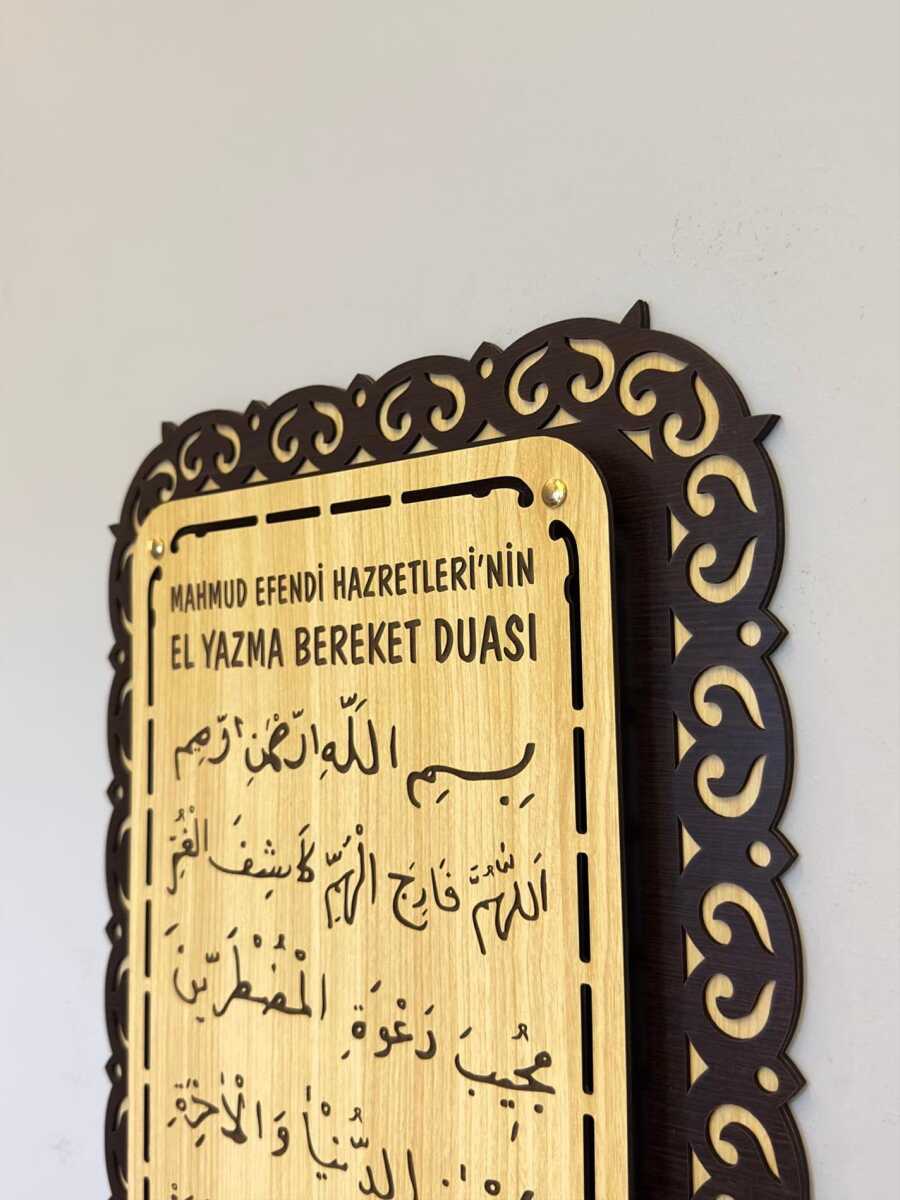 MAHMUD EFENDİ HAZRETLERİ'NİN
EL YAZMA BEREKET DUASI
بِسمِ اللَّهِ الرَّحْمٰنِ الرَّحِيمِ
اَللّٰهُمَّ فَارِجَ الْهَمِّ كَاشِفَ الْغَمِّ
مُجِيبَ دَعْوَةِ الْمُضْطَرِّينَ
الدُّنْيَا وَالْاٰخِرَةِ